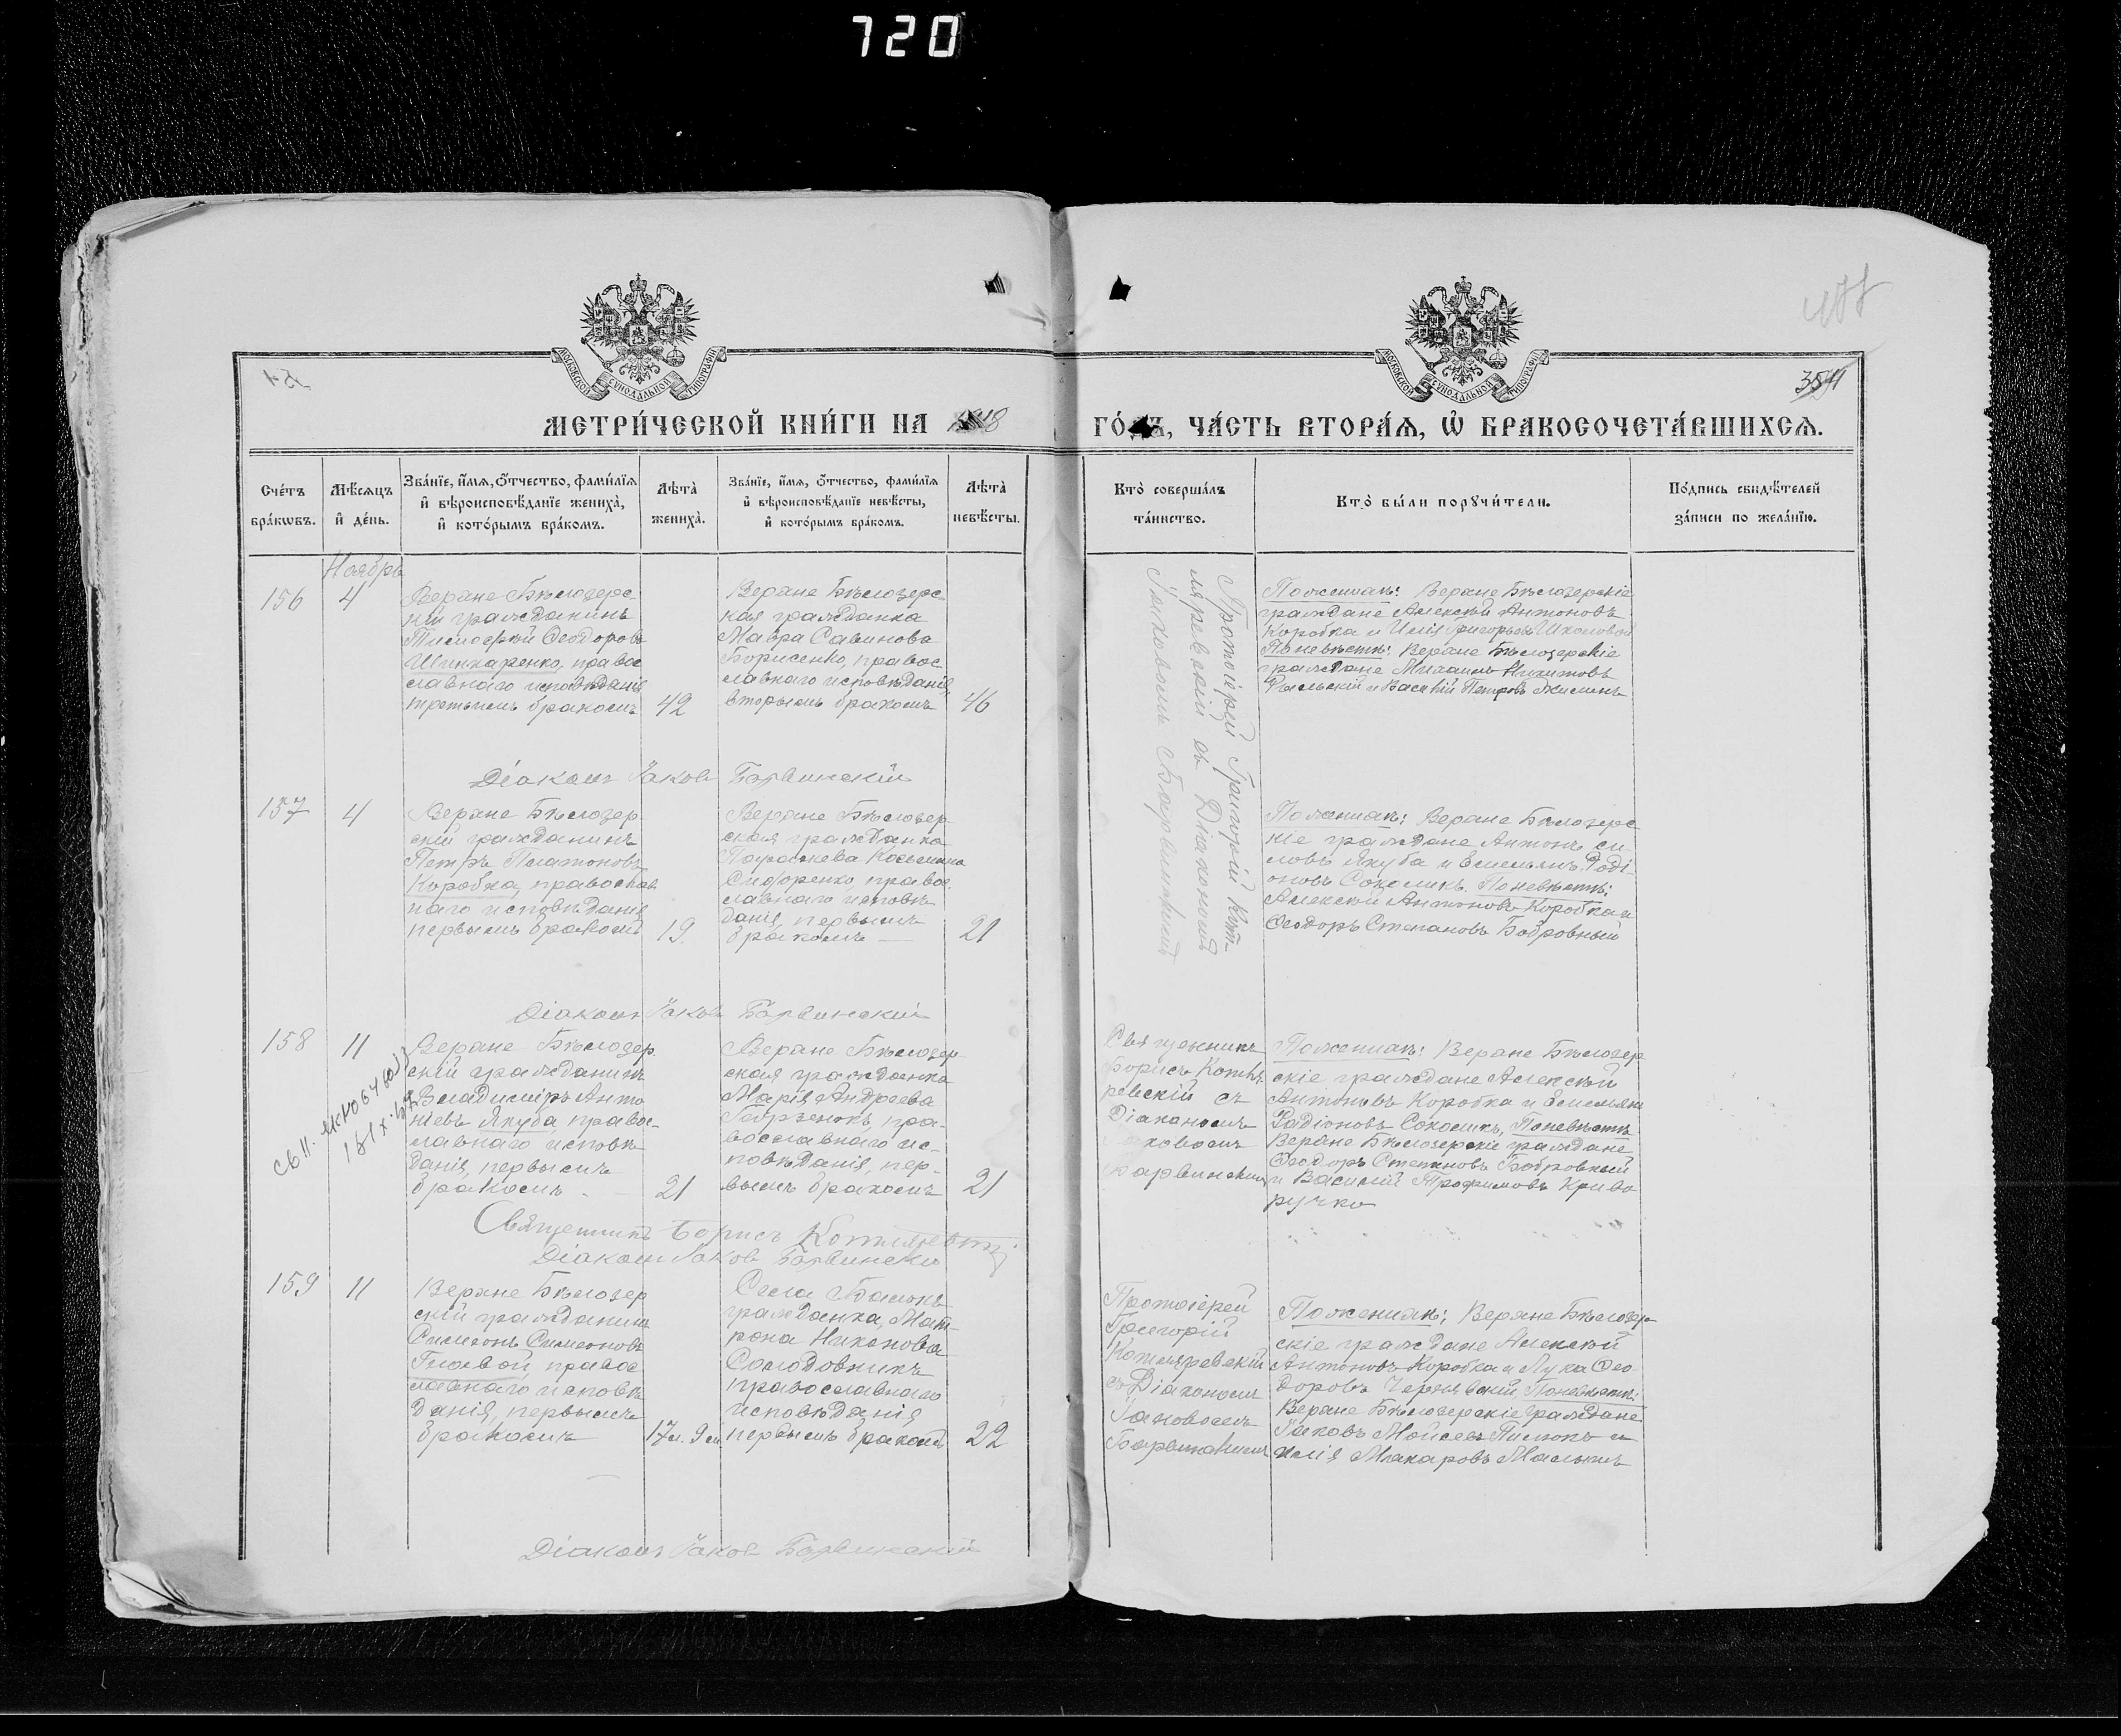 720
МОСКОВСКОЙ СѴНОДАЛЬНОЙ ТИПОГРАФІИ
МОСКОВСКОЙ СѴНОДАЛЬНОЙ ТИПОГРАФІИ
354
МЕТРИ́ЧЕСКОЙ КНИ́ГИ НА 1918 ГО́ДЪ, ЧА́СТЬ ВТОРА́Ѧ, Ѡ҆ БРАКОСОЧЕТА́ВШИХСѦ.
Сче́тъ бра́кѡвъ.
Мѣ́сѧцъ и҆ де́нь.
Зва́нїе, и҆́мѧ, ѻ҆́тчество, фами́лїѧ
и҆ вѣроисповѣ́данїе жениха̀,
и҆ кото́рымъ бра́комъ.
Лѣ́та̀ жениха̀.
Зва́нїе, и҆́мѧ, ѻ҆́тчество, фами́лїѧ
и҆ вѣроисповѣ́данїе невѣ́сты,
и҆ кото́рымъ бра́комъ.
Лѣ́та̀ невѣ́сты.
Кто̀ соверша́лъ та́инство.
Кто̀ бы́ли порꙋчи́тели.
По́дпись свидѣ́телей
за́писи по жела́нїю.
Ноябрь
156
4
Веране Бѣлозерс-
кій гражданинъ
Тимофей Ѳеодоровъ
Шинкаренко, правос
славнаго исповѣданія
третьимъ бракомъ
42
Веране Бѣлозерс-
кая гражданка
Мавра Савинова
Борисенко, правос
славнаго исповѣданія,
вторымъ бракомъ
46
Протоіерей Григорій Кот-
ляревскій съ Діакономъ
Іаковомъ Барвинскимъ
По женихѣ: Веране Бѣлозерскіе
граждане Алексѣй Антоновъ
Коробка и Илія Григорьевъ
По невѣстѣ: Веране Бѣлозерскіе
граждане Михаилъ Никитовъ
и Василій Петровъ
Діаконъ Іаковъ Барвинскій
157
4
Веране Бѣлозер
скій гражданинъ
Петръ Платоновъ
Коробка, православ
наго исповѣданія
первымъ бракомъ
19.
Веране Бѣлозер-
ская гражданка
Параскева Косьмина
Сидоренко, правос-
славнаго исповѣ
данія, первымъ
бракомъ —
21
По женихѣ: Веране Бѣлозерс
кіе граждане Антонъ си
ловъ Якуба и Емельянъ Роді
оновъ Соколикъ. По невѣстѣ:
Алексѣй Антоновъ Коробка и
Ѳеодоръ Степановъ Бобровный
Діаконъ Іаковъ Барвинскій
158
11
Веране Бѣлозер
скій гражданинъ
Владимиръ Анто
ніевъ Якуба, правос-
лавнаго исповѣ
данія, первымъ
бракомъ. —
21
Веране Бѣлозер-
ская гражданка
Марія Андреева
пра-
вославнаго ис-
повѣданія, пер-
вымъ бракомъ
21
Священникъ
Борисъ Котля-
ревскій съ
Діакономъ
Іаковомъ
Барвинскимъ
По женихѣ: Веране Бѣлозер
скіе граждане Алексѣй
Антоновъ Коробка и Емельянъ
Радіоновъ Соколикъ, По невѣстѣ
Веране Бѣлозерскіе граждане
Ѳеодоръ Степановъ Бобровный
и Василій Трофимовъ Криво
ручко
Священникъ Борисъ Котляревскій
Діаконъ Іаковъ Барвинскій
159
11
Веране Бѣлозер
скій гражданинъ
Симеонъ Симеоновъ
правос
лавнаго исповѣ
данія, первымъ
бракомъ
17 л. 9 м.
Села
гражданка, Мат-
рона Никонова
Солодовникъ
православнаго
исповѣданія
первымъ бракомъ
22
Протоіерей
Григорій
Котляревскій
съ Діакономъ
Іаковомъ
Барвинскимъ
По женихѣ: Веране Бѣлозер-
скіе граждане Алексѣй
Антоновъ Коробка и Лука Ѳео
доровъ Чернявскій По невѣстѣ:
Веране Бѣлозерскіе граждане
Іаковъ Мойсеевъ и
Илія Макаровъ
Діаконъ Іаковъ Барвинскій